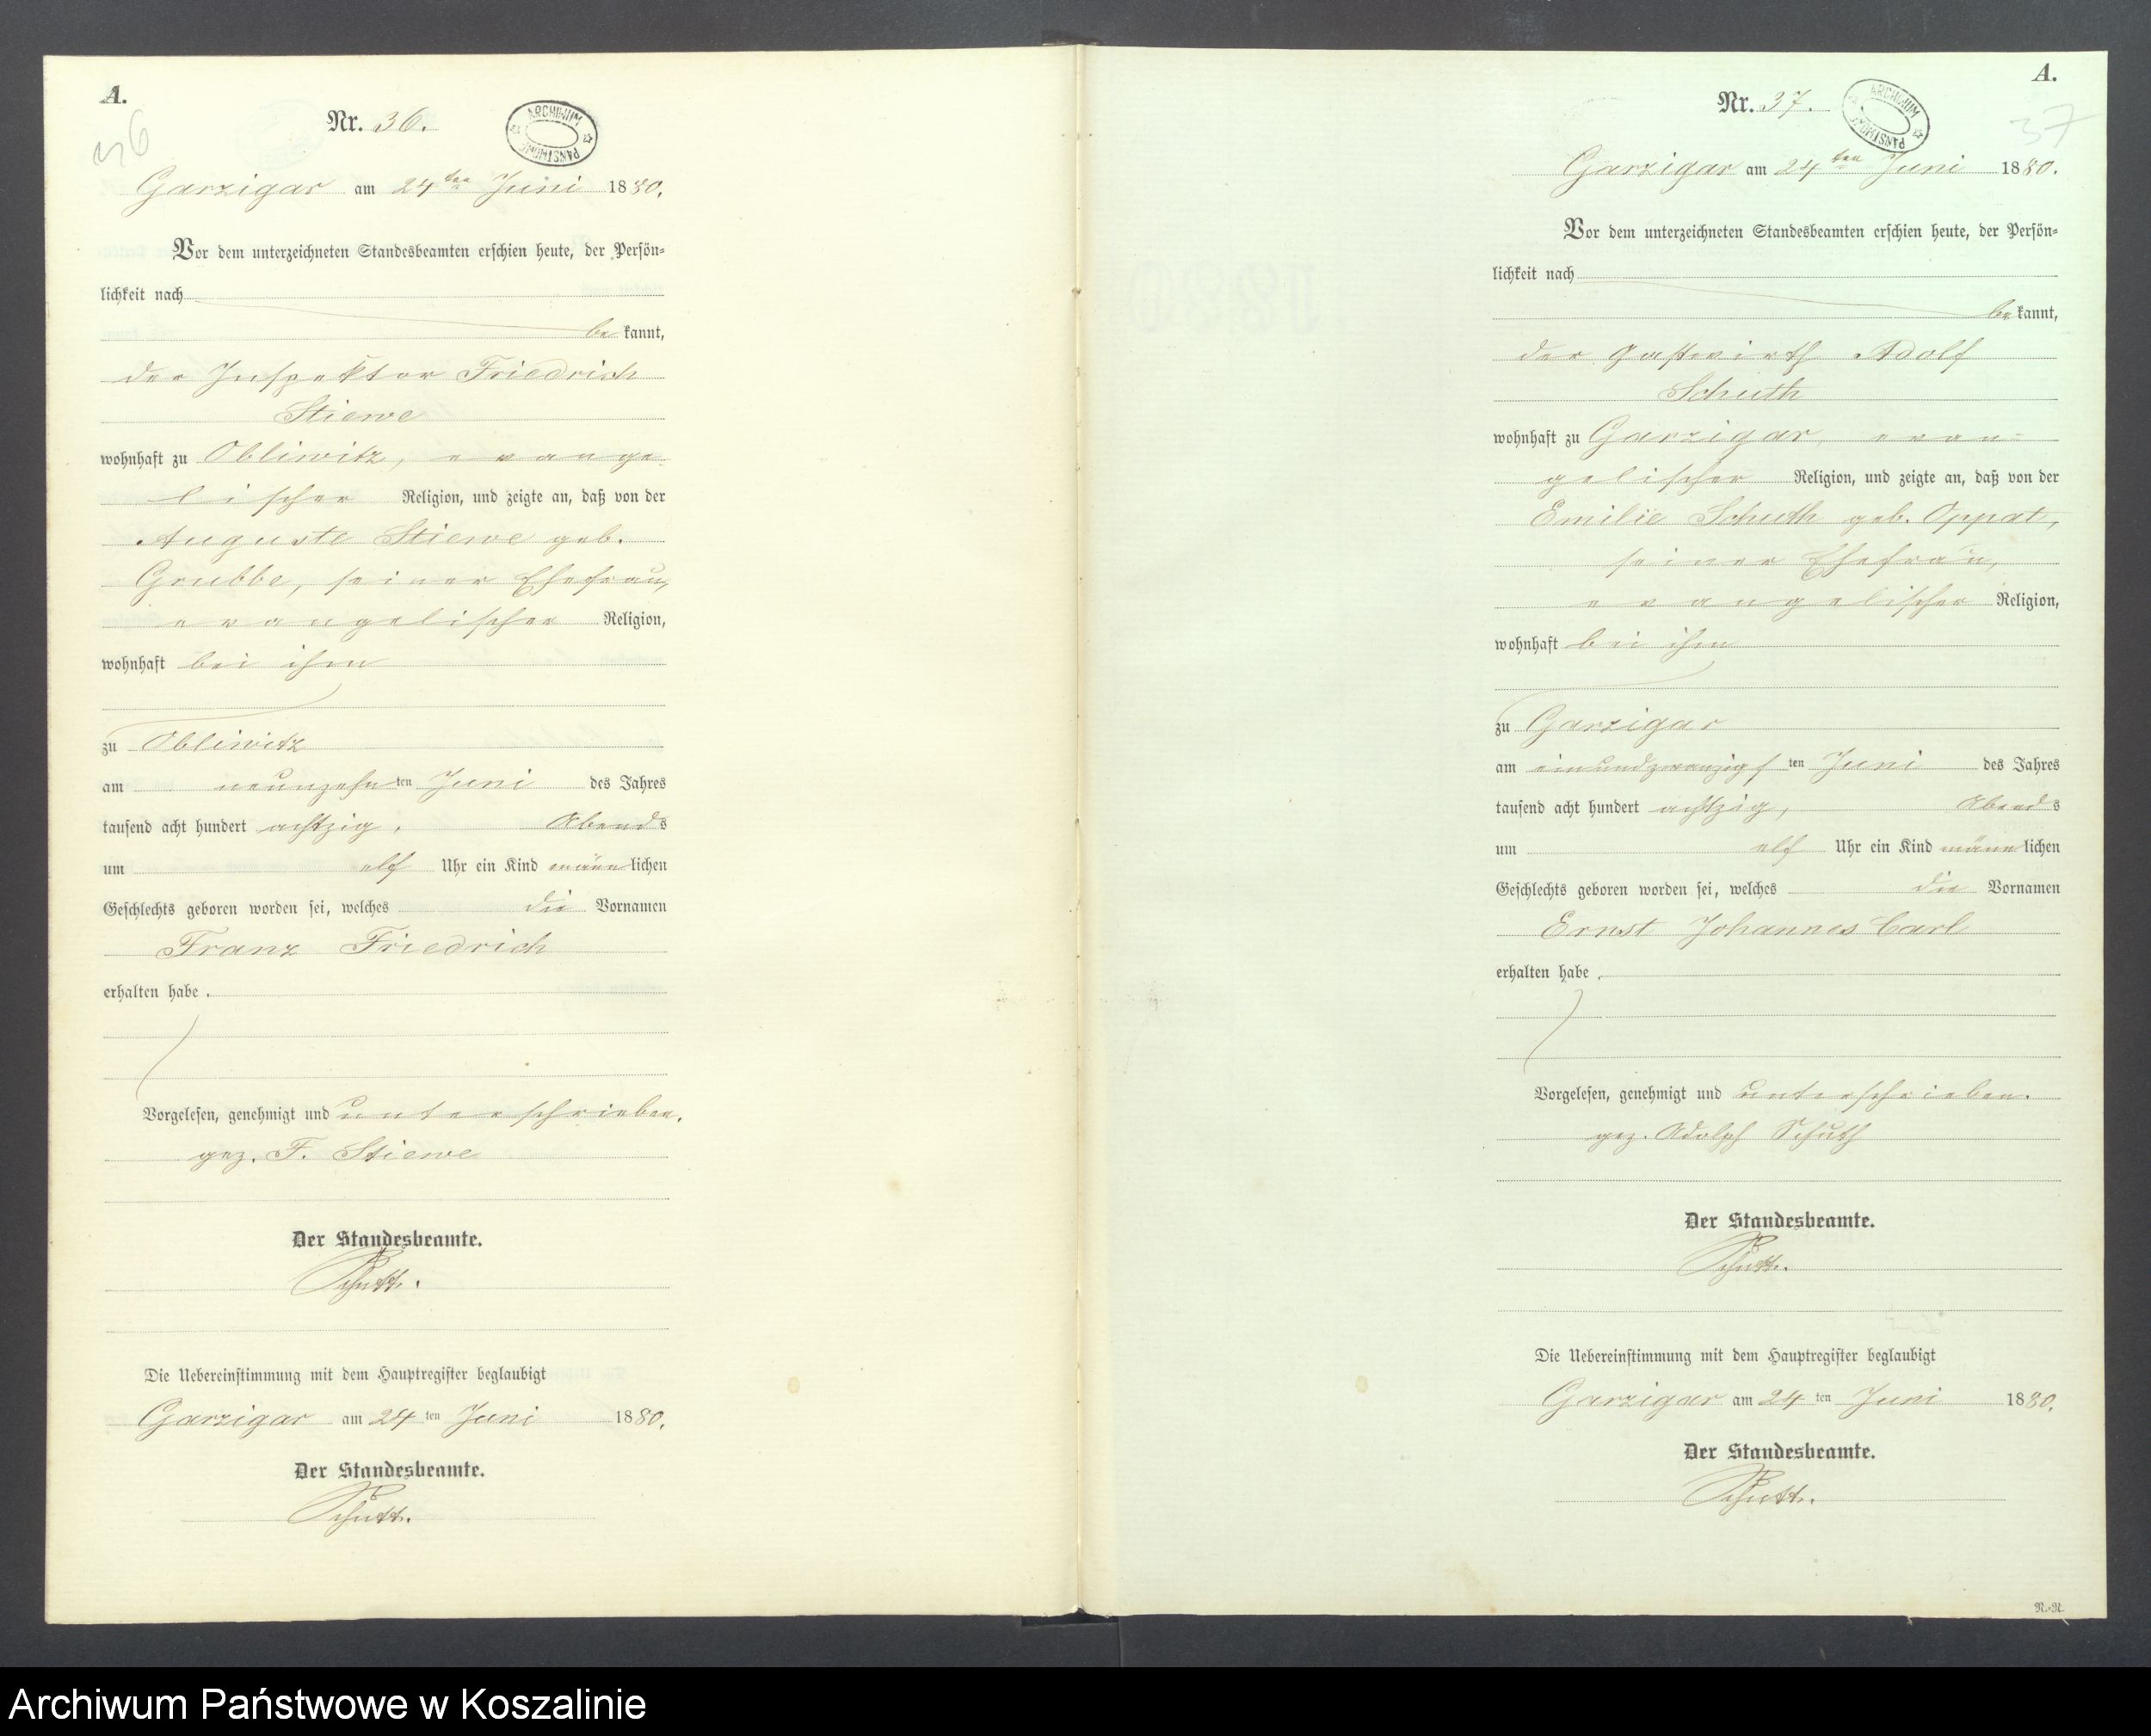 A.
36
Nr. 36.
ARCHIWUM PAŃSTWOWE
Garzigar am 24ten Juni 1880.
Vor dem unterzeichneten Standesbeamten erschien heute, der Persön-
lichkeit nach
be kannt,
der Inspektor Friedrich
Stiewe
wohnhaft zu Obliwitz, evange-
lischer Religion, und zeigte an, daß von der
Auguste Stiewe geb.
Grubbe, seiner Ehefrau,
evangelischer Religion,
wohnhaft bei ihm
zu Obliwitz
am neunzehnten Juni des Jahres
tausend acht hundert achtzig, Abends
um elf Uhr ein Kind männlichen
Geschlechts geboren worden sei, welches die Vornamen
Franz Friedrich
erhalten habe.
Vorgelesen, genehmigt und unterschrieben.
gez. F. Stiewe
Der Standesbeamte.
Schutt.
Die Uebereinstimmung mit dem Hauptregister beglaubigt
Garzigar am 24ten Juni 1880.
Der Standesbeamte.
Schutt.
A.
37
Nr. 37.
ARCHIWUM PAŃSTWOWE
Garzigar am 24ten Juni 1880.
Vor dem unterzeichneten Standesbeamten erschien heute, der Persön-
lichkeit nach
be kannt,
der Gastwirth Adolf
Schuth
wohnhaft zu Garzigar, evan-
gelischer Religion, und zeigte an, daß von der
Emilie Schuth geb. Oppat,
seiner Ehefrau,
evangelischer Religion,
wohnhaft bei ihm
zu Garzigar
am einundzwanzigsten Juni des Jahres
tausend acht hundert achtzig, Abends
um elf Uhr ein Kind männlichen
Geschlechts geboren worden sei, welches die Vornamen
Ernst Johannes Carl
erhalten habe.
Vorgelesen, genehmigt und unterschrieben.
gez. Adolph Schuth
Der Standesbeamte.
Schutt.
Die Uebereinstimmung mit dem Hauptregister beglaubigt
Garzigar am 24ten Juni 1880.
Der Standesbeamte.
Schutt.
R.-R.
Archiwum Państwowe w Koszalinie